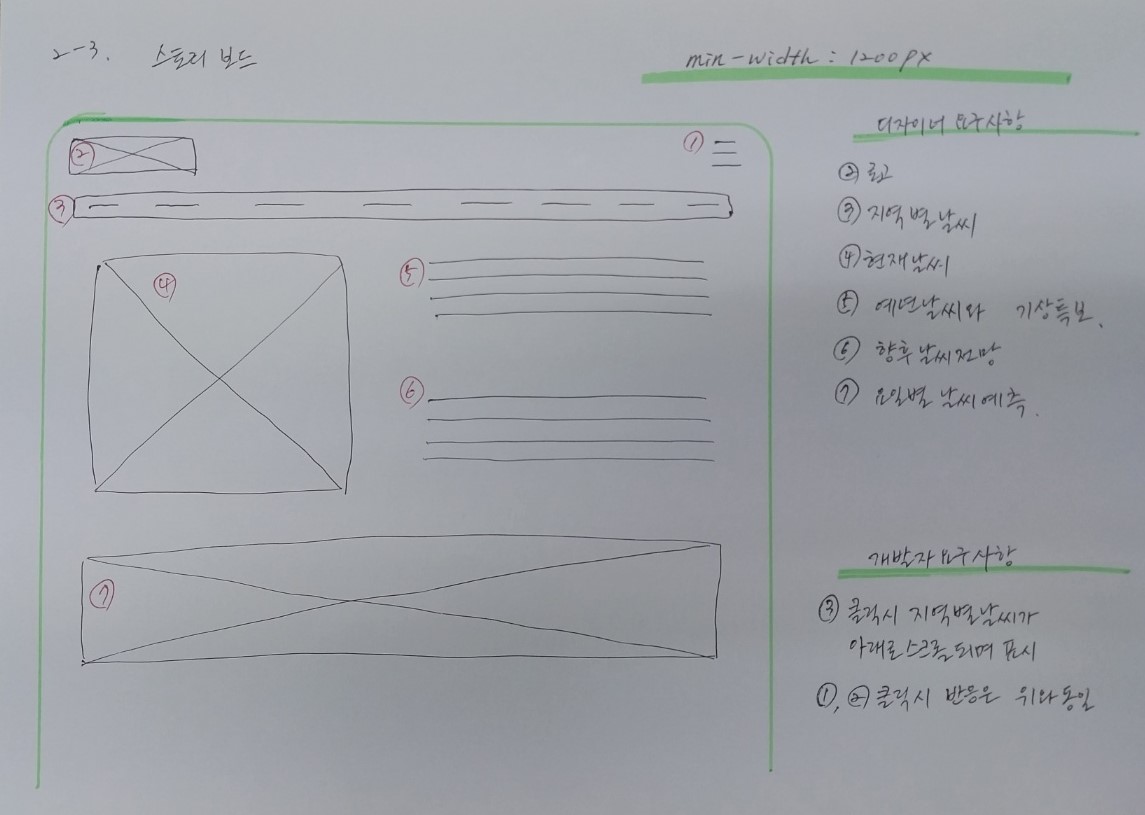 2-3. 스토리 보드
min-width : 1200px
② ① ③ ④ ⑤ ⑥ ⑦
디자이너 요구사항
② 로고
③ 지역별날씨
④ 현재날씨
⑤ 예년날씨와 기상특보.
⑥ 향후 날씨전망
⑦ 요일별 날씨예측.
개발자 요구사항
③ 클릭시 지역별날씨가
아래로 스크롤되며 표시
①, ② 클릭시 반응은 위와동일